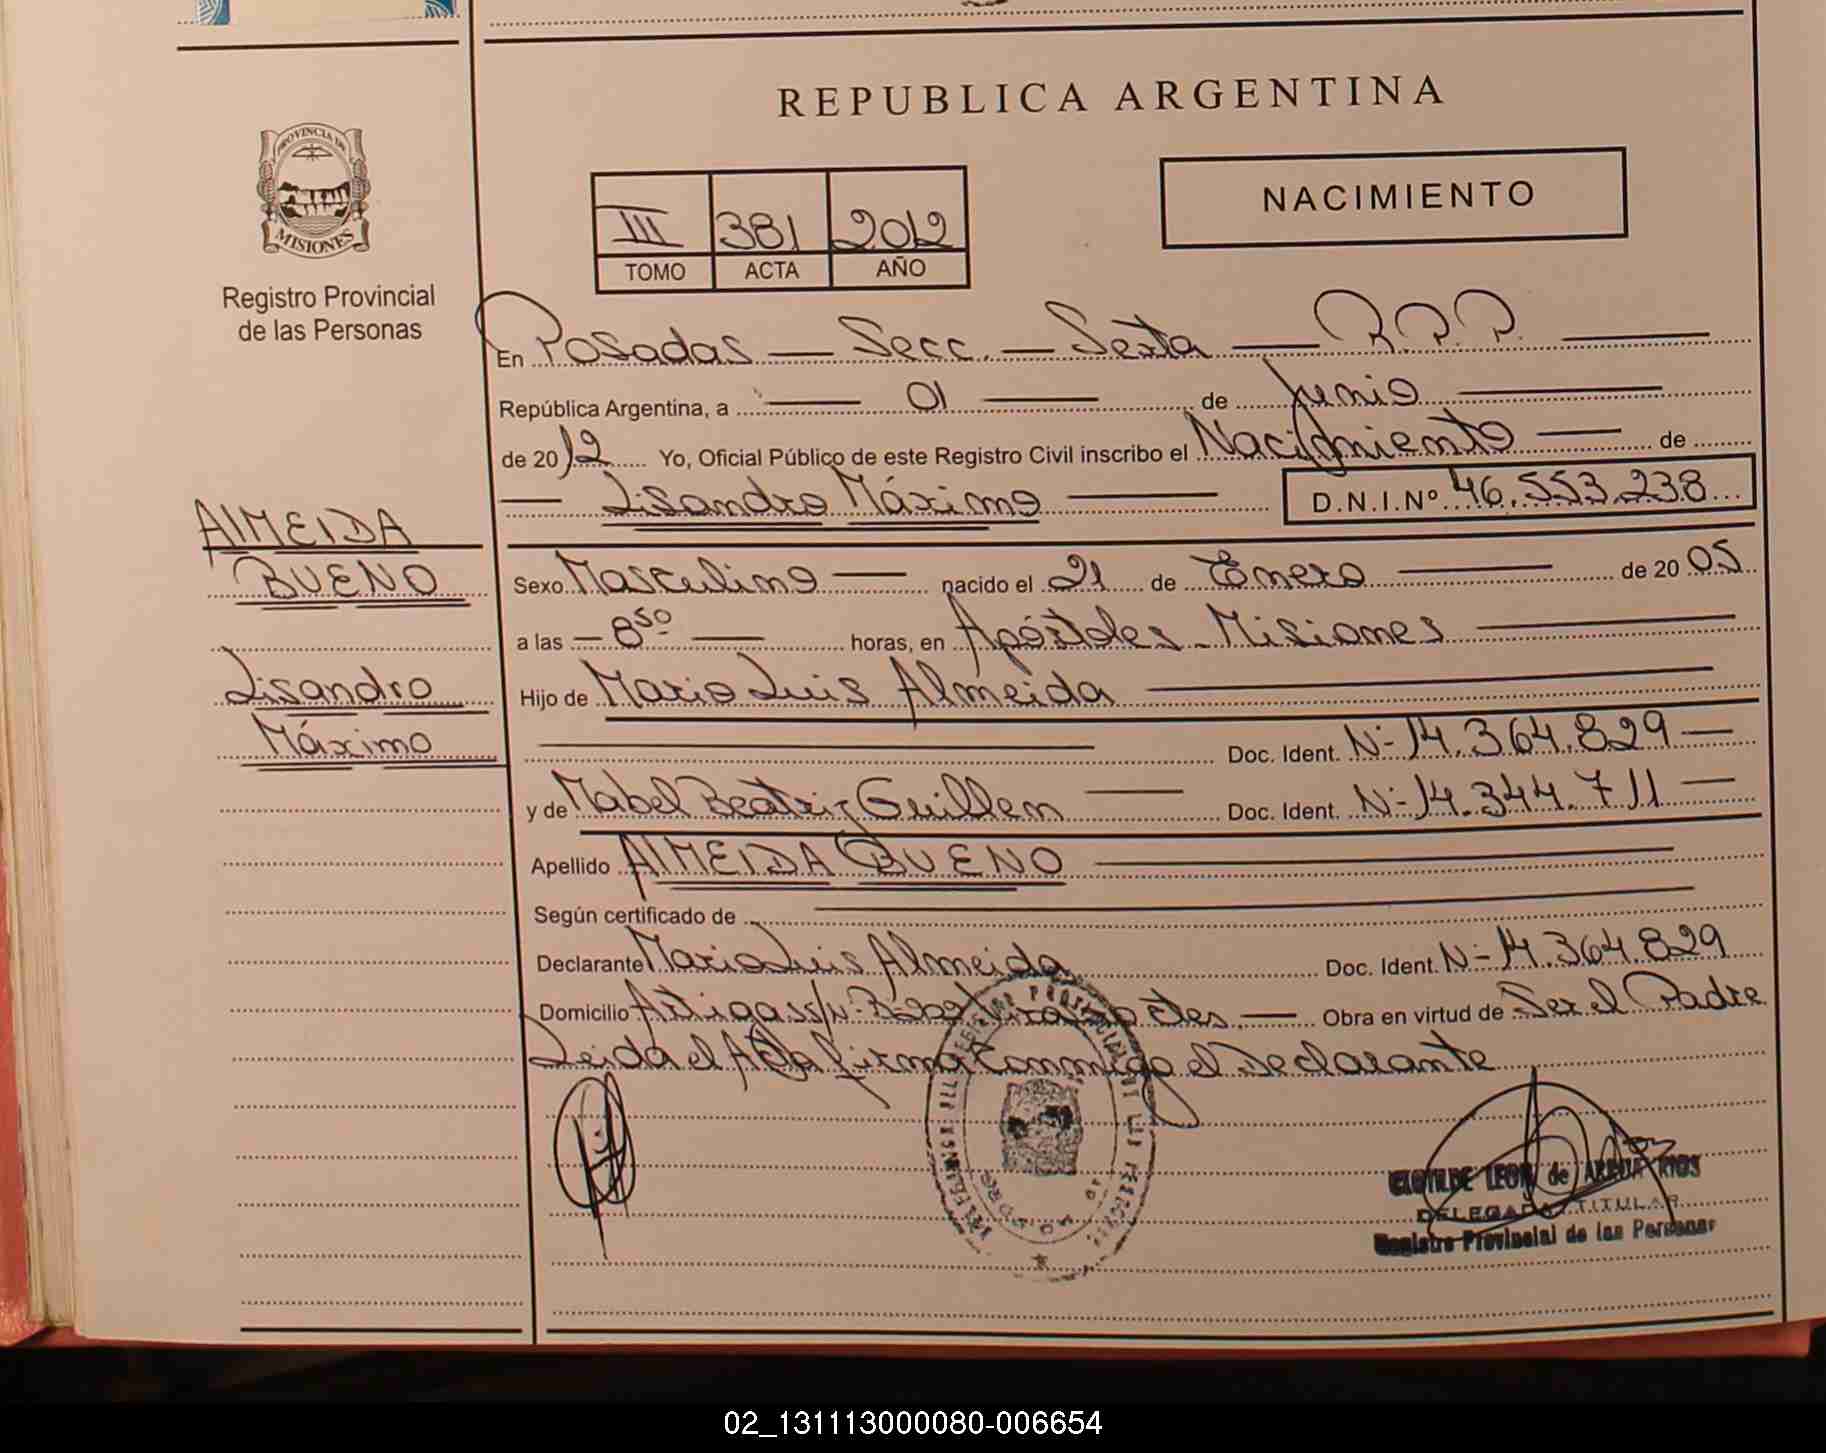 REPUBLICA ARGENTINA
PROVINCIA DE
MISIONES
Registro Provincial
de las Personas
III 381 2012
TOMO ACTA AÑO
NACIMIENTO
En Posadas — Secc. — Sexta — R.P.P. —
República Argentina, a — 01 — de Junio —
de 2012 Yo, Oficial Público de este Registro Civil inscribo el Nacimiento — de
— Lisandro Máximo — D.N.I.Nº 46.553.238
ALMEIDA
BUENO
Lisandro
Máximo
Sexo Masculino — nacido el 21 de Enero — de 2005
a las — 8 50 — horas, en Apóstoles - Misiones —
Hijo de Mario Luis Almeida —
— Doc. Ident. Nº 14.364.829 —
y de Mabel Beatriz Guillen — Doc. Ident. Nº 14.344.711 —
Apellido ALMEIDA BUENO —
Según certificado de —
Declarante Mario Luis Almeida Doc. Ident. Nº 14.364.829
Domicilio Artigas s/nº — Obra en virtud de Ser el Padre
Leida el Acta firma Conmigo el Declarante
CLOTILDE LEON de ARRUA RIOS
DELEGADA TITULAR
Registro Provincial de las Personas
02_131113000080-006654